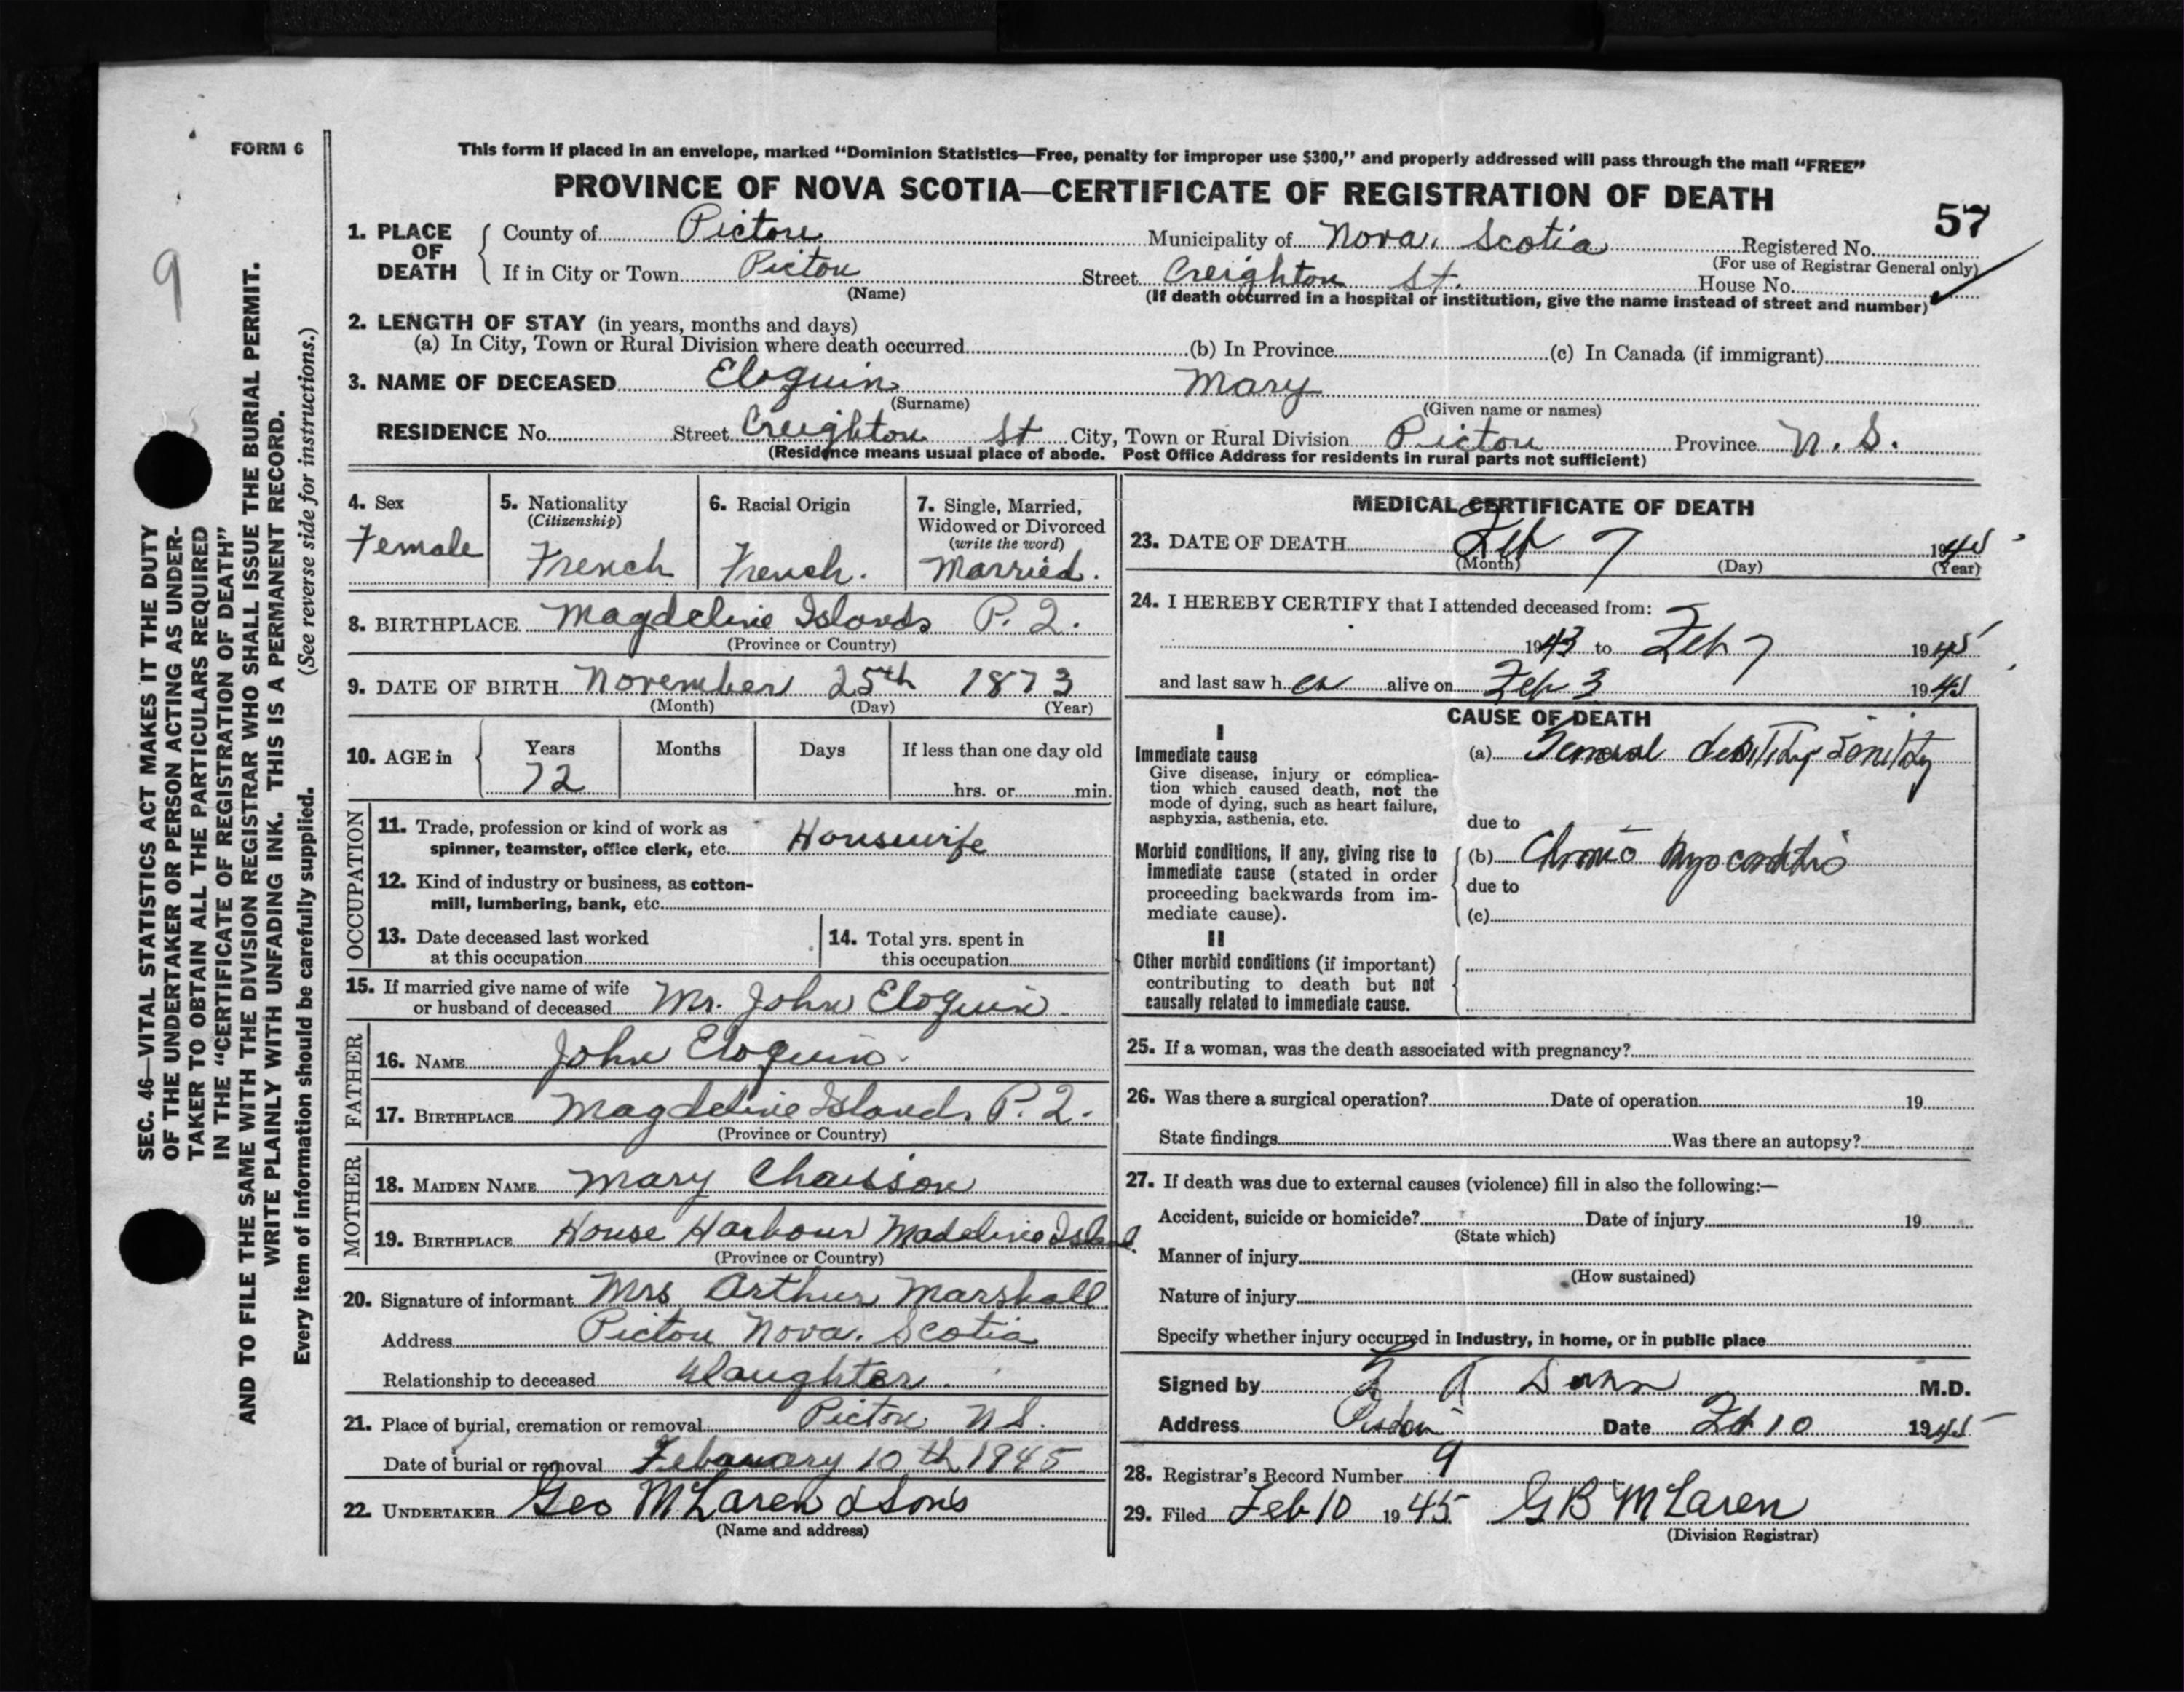 FORM 6
9
SEC. 46—VITAL STATISTICS ACT MAKES IT THE DUTY
OF THE UNDERTAKER OR PERSON ACTING AS UNDER-
TAKER TO OBTAIN ALL THE PARTICULARS REQUIRED
IN THE "CERTIFICATE OF REGISTRATION OF DEATH"
AND TO FILE THE SAME WITH THE DIVISION REGISTRAR WHO SHALL ISSUE THE BURIAL PERMIT.
WRITE PLAINLY WITH UNFADING INK. THIS IS A PERMANENT RECORD.
Every item of information should be carefully supplied. (See reverse side for instructions.)
This form if placed in an envelope, marked "Dominion Statistics—Free, penalty for improper use $300," and properly addressed will pass through the mail "FREE"
PROVINCE OF NOVA SCOTIA—CERTIFICATE OF REGISTRATION OF DEATH
57
1. PLACE OF DEATH County of Pictou Municipality of Nova. Scotia Registered No.
(For use of Registrar General only)
If in City or Town Pictou Street Creighton St. House No.
(Name) (If death occurred in a hospital or institution, give the name instead of street and number)
2. LENGTH OF STAY (in years, months and days)
(a) In City, Town or Rural Division where death occurred (b) In Province (c) In Canada (if immigrant)
3. NAME OF DECEASED Eloquin Mary
(Surname) (Given name or names)
RESIDENCE No. Street Creighton St City, Town or Rural Division Pictou Province N.S.
(Residence means usual place of abode. Post Office Address for residents in rural parts not sufficient)
4. Sex
Female
5. Nationality
(Citizenship)
French
6. Racial Origin
French.
7. Single, Married,
Widowed or Divorced
(write the word)
Married.
8. BIRTHPLACE Magdeline Islands P.Q.
(Province or Country)
9. DATE OF BIRTH November 25th 1873
(Month) (Day) (Year)
10. AGE in Years Months Days If less than one day old
72 hrs. or min.
OCCUPATION
11. Trade, profession or kind of work as
spinner, teamster, office clerk, etc. Housewife
12. Kind of industry or business, as cotton-
mill, lumbering, bank, etc.
13. Date deceased last worked
at this occupation
14. Total yrs. spent in
this occupation
15. If married give name of wife
or husband of deceased Mr. John Eloquin.
FATHER
16. NAME John Eloquin.
17. BIRTHPLACE Magdeline Islands P.Q.
(Province or Country)
MOTHER
18. MAIDEN NAME Mary Chaisson
19. BIRTHPLACE House Harbour Madeline Island.
(Province or Country)
20. Signature of informant Mrs Arthur Marshall
Address Pictou Nova. Scotia
Relationship to deceased Daughter.
21. Place of burial, cremation or removal Pictou N.S.
Date of burial or removal Febauary 10th 1945
22. UNDERTAKER Geo McLaren & Sons
(Name and address)
MEDICAL CERTIFICATE OF DEATH
23. DATE OF DEATH Feb 7 1945
(Month) (Day) (Year)
24. I HEREBY CERTIFY that I attended deceased from:
1943 to Feb 7 1945
and last saw her alive on Feb 3 1945
CAUSE OF DEATH
I
Immediate cause
Give disease, injury or complica-
tion which caused death, not the
mode of dying, such as heart failure,
asphyxia, asthenia, etc.
(a) General debility Senility
due to
Morbid conditions, if any, giving rise to
immediate cause (stated in order
proceeding backwards from im-
mediate cause).
(b) Chronic Myocarditis
due to
(c)
II
Other morbid conditions (if important)
contributing to death but not
causally related to immediate cause.
25. If a woman, was the death associated with pregnancy?
26. Was there a surgical operation? Date of operation 19
State findings Was there an autopsy?
27. If death was due to external causes (violence) fill in also the following:—
Accident, suicide or homicide? Date of injury 19
(State which)
Manner of injury
(How sustained)
Nature of injury
Specify whether injury occurred in industry, in home, or in public place
Signed by Dunn M.D.
Address Pictou Date Feb 10 1945
28. Registrar's Record Number 9
29. Filed Feb 10 1945 G B McLaren
(Division Registrar)